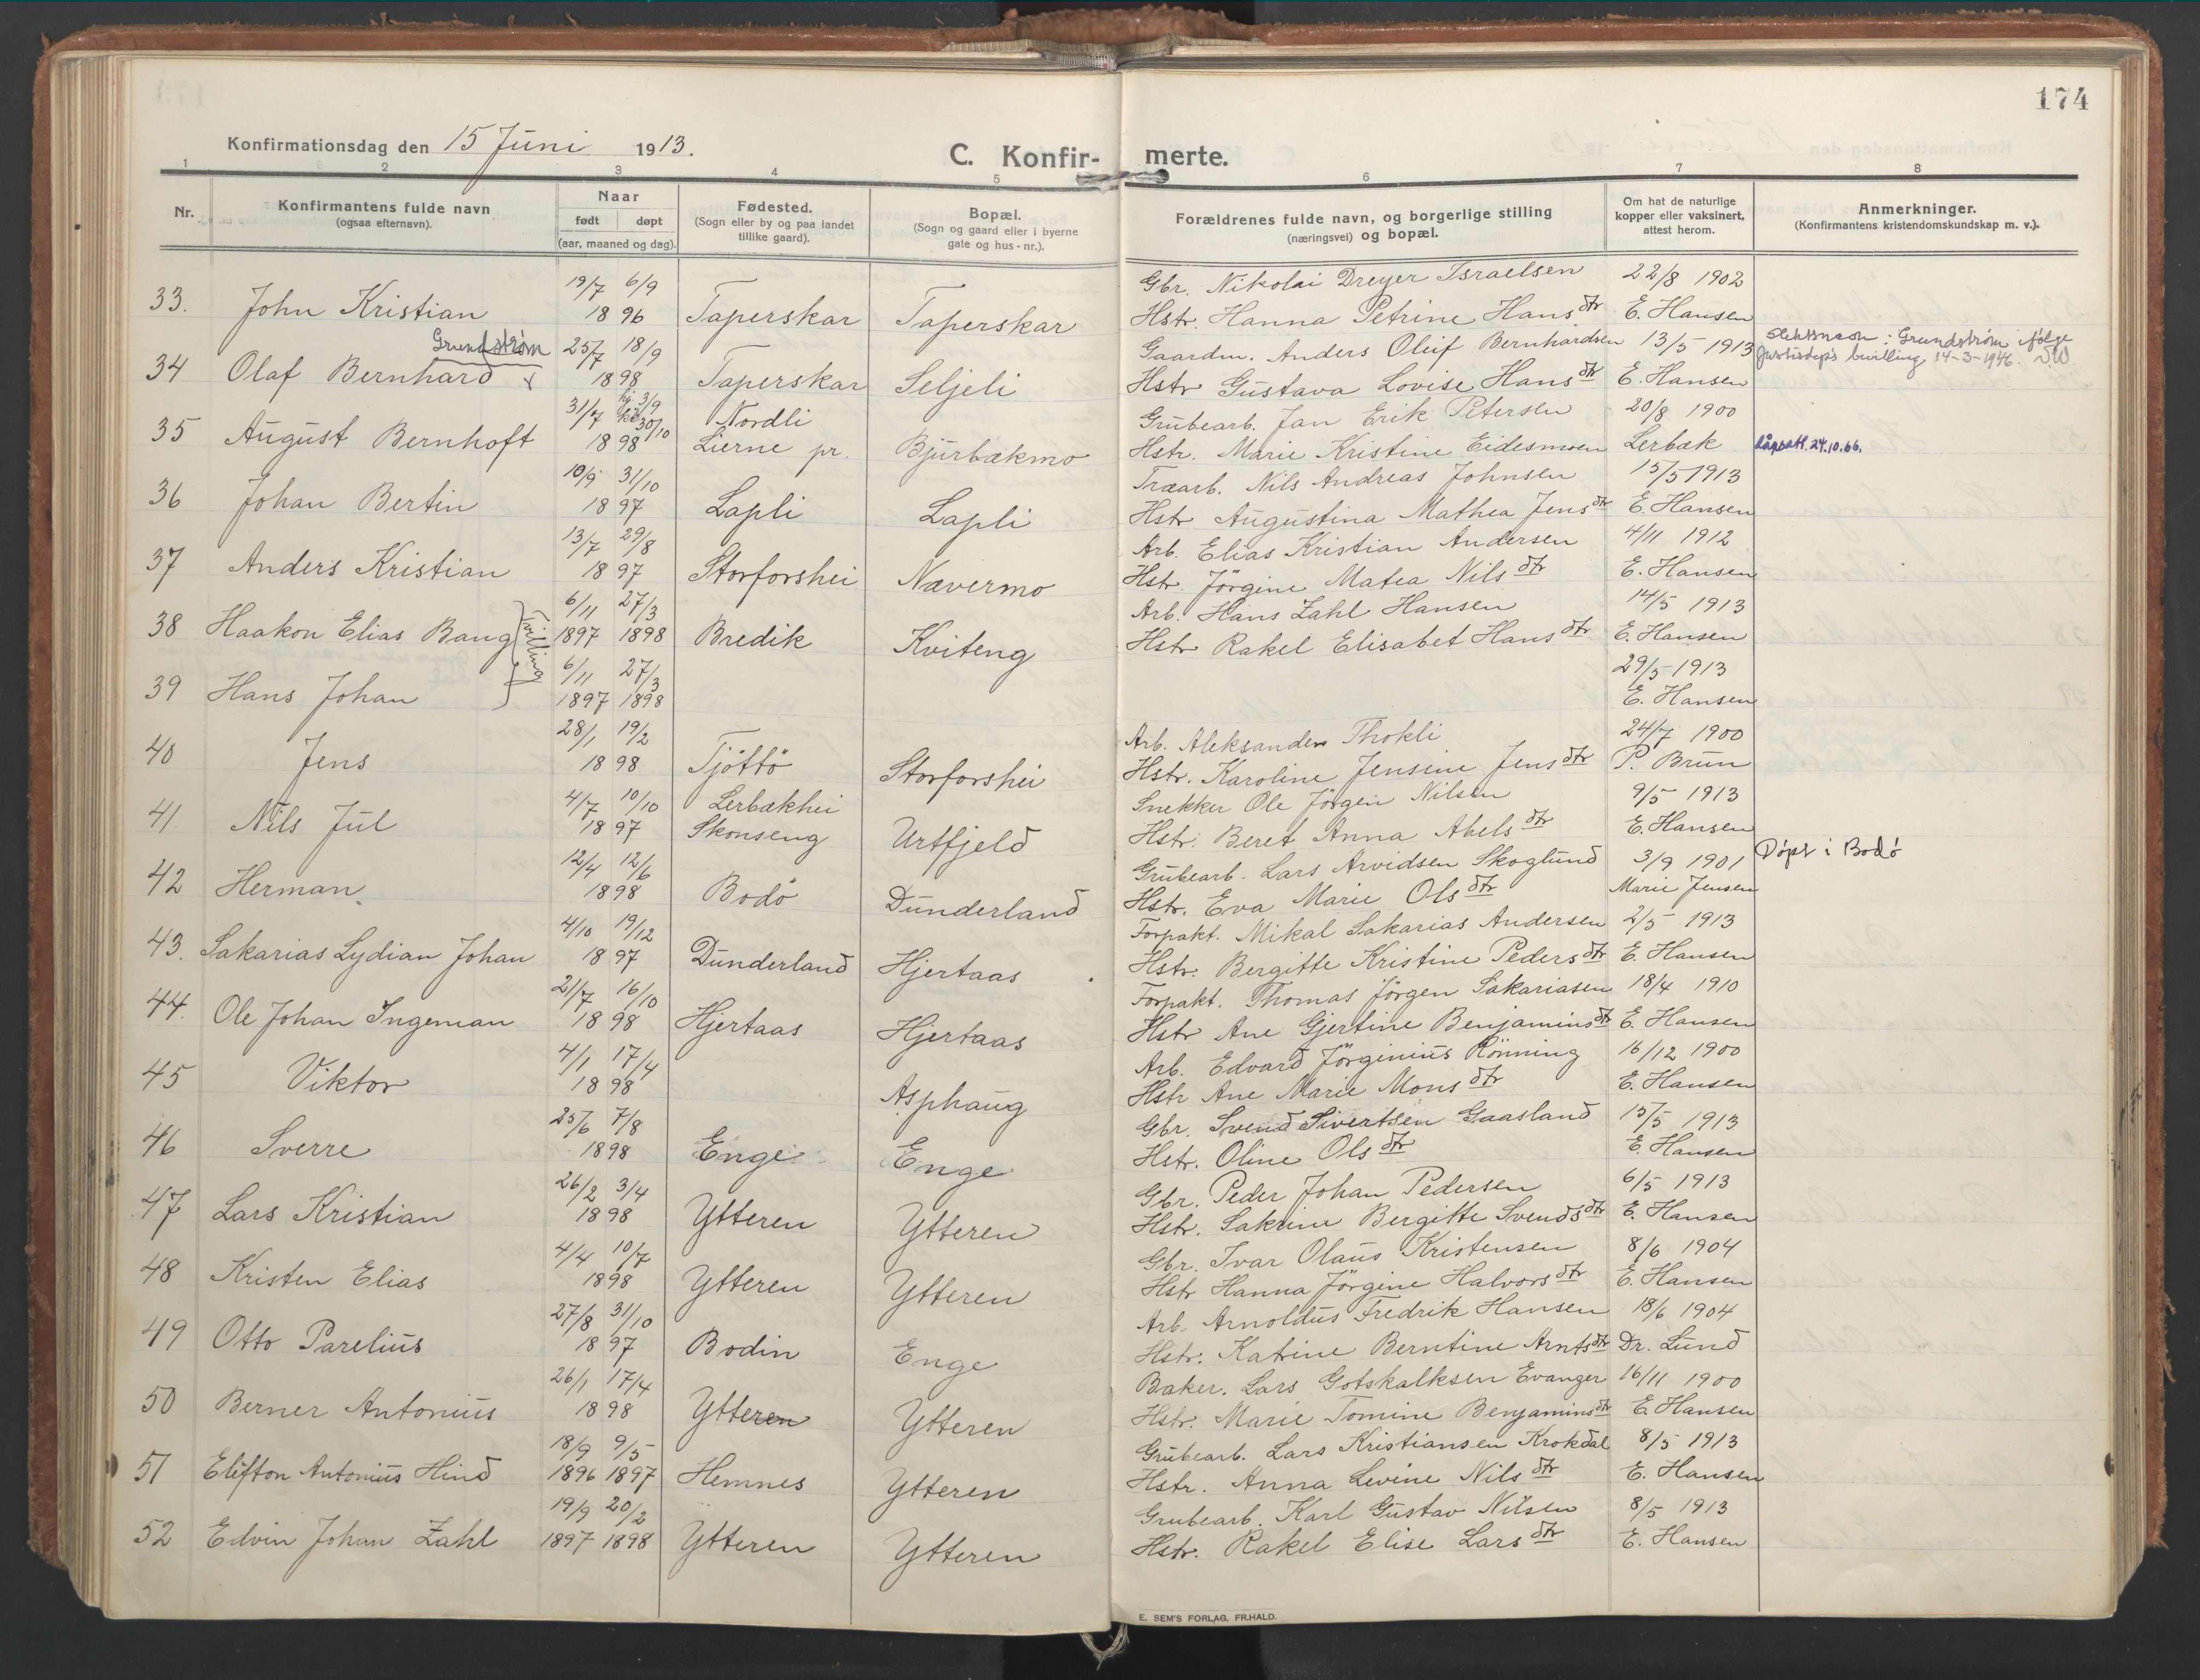 174
Konfirmationsdag den 15 Juni 1913.
C. Konfir- merte.
1 2 3 4 5 6 7 8
Nr.
Konfirmantens fulde navn
(ogsaa efternavn).
Naar
født døpt
(aar, maaned og dag).
Fødested.
(Sogn eller by og paa landet
tillike gaard).
Bopæl.
(Sogn og gaard eller i byerne
gate og hus-nr.).
Forældrenes fulde navn, og borgerlige stilling
(næringsvei) og bopæl.
Om hat de naturlige
kopper eller vaksinert,
attest herom.
Anmerkninger.
(Konfirmantens kristendomskundskap m. v.).
19/7 6/9 Gbr. Nikolai Dreyer Israelsen 22/8 1902
33. John Kristian 1896 Taperskar Taperskar Hstr. Hanna Petrine Hansdtr E. Hansen
Grundstrøm 25/7 18/9 Gaardm. Anders Oluf Bernhardsen 13/5 1913 Slektsnavn: Grundstrøm ifølge
34 Olaf Bernhard 1898 Taperskar Seljeli Hstr Gustava Lovise Hansdtr E. Hansen Justisdep's bevilling 14-3-1946.
31/7 hj 3/9 k 30/10 Nordli Grubearb. Jan Erik Petersen 20/8 1900
35 August Bernhoft 1898 Lierne pr. Bjurbækmo Hstr. Marie Kristine Eidesmoen Lerbæk dåpsatt. 24.10.66.
10/9 31/10 Træarb. Nils Andreas Johnsen 15/5 1913
36 Johan Bertin 1897 Lapli Lapli Hstr Augustina Mathea Jensdtr E. Hansen
13/7 29/8 Arb. Elias Kristian Andersen 4/11 1912
37 Anders Kristian 1897 Storforshei Nævermo Hstr. Jörgine Matea Nilsdtr E. Hansen
6/11 27/3 Arb. Hans Zahl Hansen 14/5 1913
38 Haakon Elias Bang Tvilling 1897 1898 Bredik Kviteng Hstr Rakel Elisabet Hansdtr E. Hansen
6/11 27/3 29/5 1913
39 Hans Johan 1897 1898 E. Hansen
28/1 19/2 Arb. Aleksander Thokli 24/7 1900
40 Jens 1898 Tjöttö Storforshei Hstr. Karoline Jensine Jensdtr P. Brun
4/7 10/10 Lerbækhei Snekker Ole Jörgen Nilsen 9/5 1913
41 Nils Jul 1897 Skonseng Urtfjeld Hstr. Beret Anna Abelsdtr E. Hansen
12/4 12/6 Grubearb. Lars Arvidsen Skoglund 3/9 1901 Döpt i Bodö
42 Herman. 1898 Bodö Dunderland Hstr. Eva Marie Olsdtr Marie Jensen
4/10 19/12 Forpakt. Mikal Sakarias Andersen 2/5 1913
43. Sakarias Lydian Johan 1897 Dunderland Hjertaas Hstr. Bergitte Kristine Pedersdtr E. Hansen
21/7 16/10 Forpakt. Thomas Jörgen Sakariasen 18/4 1910
44. Ole Johan Ingeman 1898 Hjertaas Hjertaas Hstr Ane Gjertine Benjaminsdtr E. Hansen
4/1 17/4 Arb. Edvard Jörginius Rönning 16/12 1900
45 Viktor 1898 Asphaug Hstr Ane Marie Monsdtr E. Hansen
25/6 7/8 Gbr. Svend Sivertsen Gaasland 15/5 1913
46 Sverre 1898 Enge Enge Hstr. Oline Olsdtr E. Hansen
26/2 3/4 Gbr. Peder Johan Pedersen 6/5 1913
47 Lars Kristian 1898 Ytteren Ytteren Hstr. Sakrine Bergitte Svendsdtr E. Hansen
4/4 10/7 Gbr. Ivar Olaus Kristensen 8/6 1904
48 Kristen Elias 1898 Ytteren Ytteren Hstr Hanna Jörgine Halvorsdtr E. Hansen
27/8 31/10 Arb. Arnoldus Fredrik Hansen 18/6 1904
49 Otto Parelius 1897 Bodin Enge Hstr. Katrine Berntine Arntsdtr Dr. Lund
26/1 17/4 Baker. Lars Gotskalksen Evanger 16/11 1900
50 Berner Antonius 1898 Ytteren Ytteren Hstr. Marie Tomine Benjaminsdtr E. Hansen
18/9 9/5 Grubearb. Lars Kristiansen Krokdal 8/5 1913
51 Elifton Antonius Hind 1896 1897 Hemnes Ytteren Hstr. Anna Levine Nilsdtr E. Hansen
19/9 20/2 Grubearb. Karl Gustav Nilsen 8/5 1913
52 Edvin Johan Zahl 1897 1898 Ytteren Ytteren Hstr. Rakel Elise Larsdtr E. Hansen
E. SEM'S FORLAG, FR.HALD.